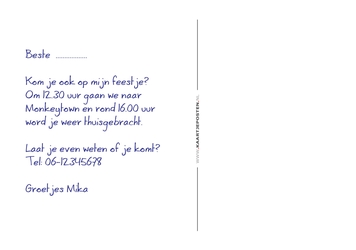 Beste ................
Kom je ook op mijn feestje?
Om 12.30 uur gaan we naar
Monkeytown en rond 16.00 uur
word je weer thuisgebracht.
Laat je even weten of je komt?
Tel: 06-12345678
Groetjes Mika
WWW.KAARTJEPOSTEN.NL